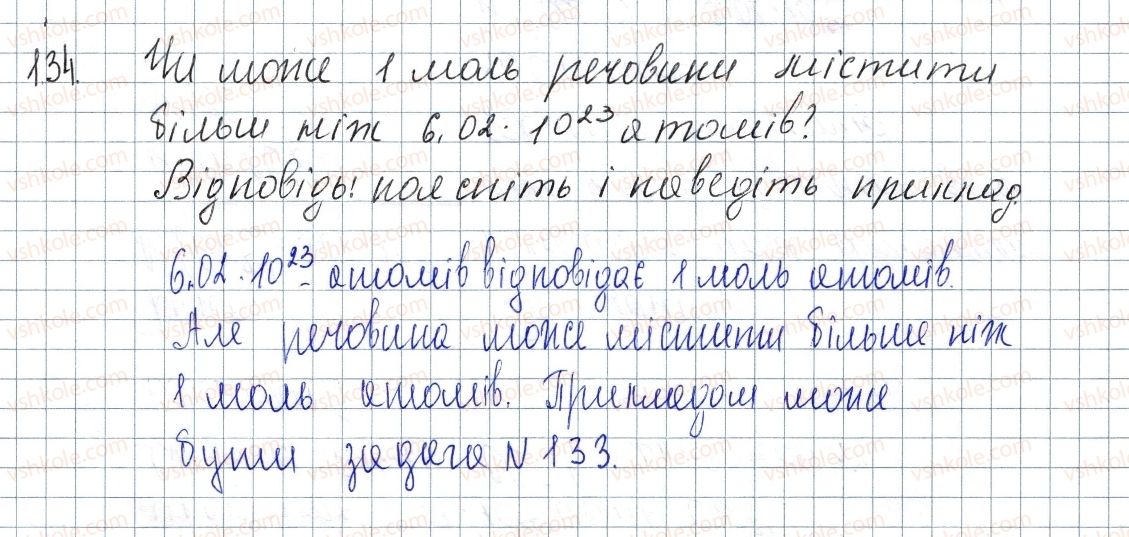 134. Чи може 1 моль речовини містити
більш ніж 6,02 · 10²³ атомів?
Відповідь: поясніть і наведіть приклад.
6,02 · 10²³ атомів відповідає 1 моль атомів.
Але речовина може містити більше ніж
1 моль атомів. Прикладом може
бути задача N 133.